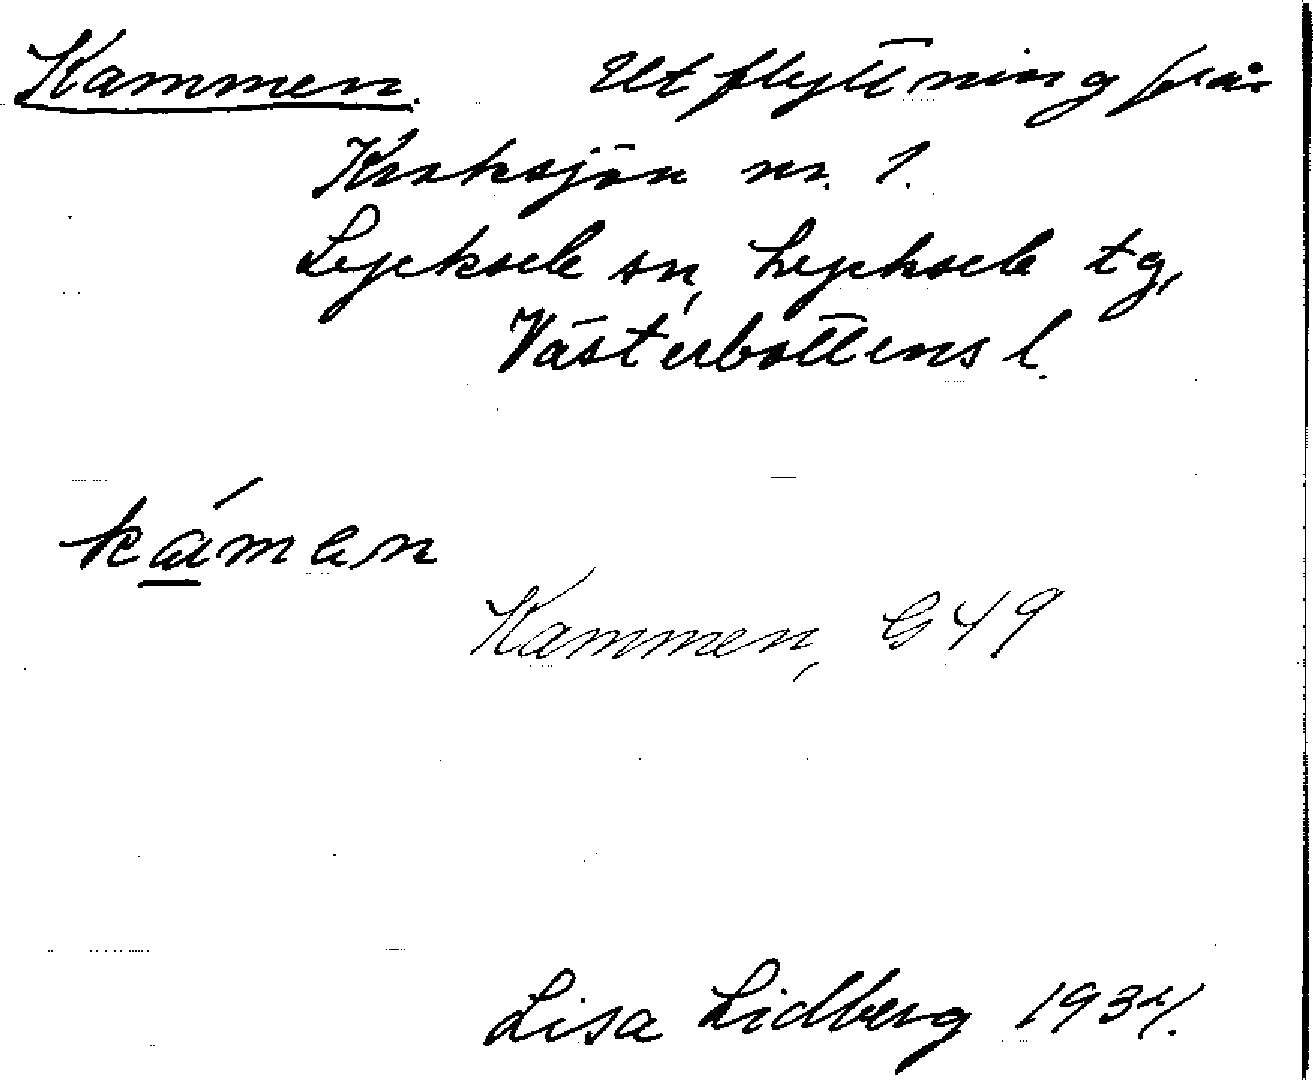 Kammen. Utflyttning från
Kroksjön nr. 1.
Lycksele sn, Lycksele tg,
Västerbottens l.
káman
Kammen, G49
Lisa Lidberg 1934.